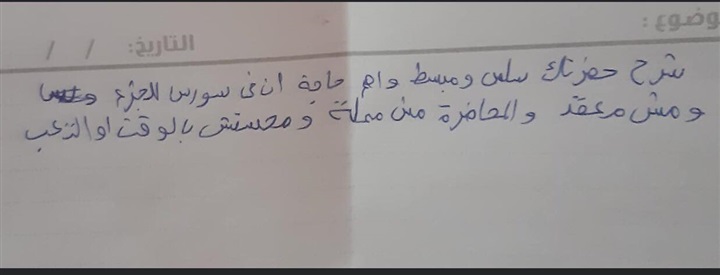 وضوع:
التاريخ: / /
شرح حضرتك سلس ومبسط واهم حاجة ان فى سورس للجزء
ومش معقد والمحاضرة مش مملة ومحستش بالوقت او التعب